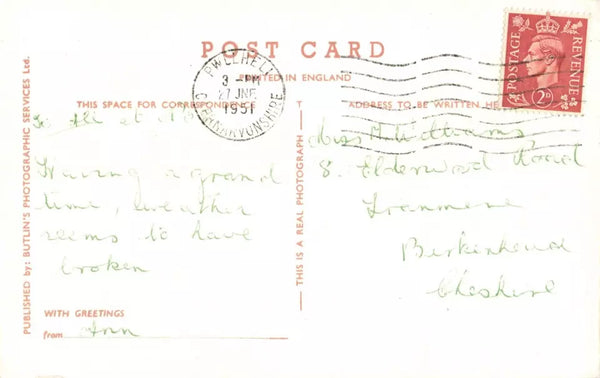 POST CARD
PRINTED IN ENGLAND
PWLLHELI
3 - PM
27 JNE
1951
CAERNARVONSHIRE
POSTAGE
REVENUE
2D
THIS SPACE FOR CORRESPONDENCE
ADDRESS TO BE WRITTEN HE
To All at
Having a grand
time, weather
seems to have
broken
WITH GREETINGS
from Ann
PUBLISHED by: BUTLIN'S PHOTOGRAPHIC SERVICES Ltd.
THIS IS A REAL PHOTOGRAPH
Miss Williams
8. Elderwood Road
Tranmere
Birkenhead
Cheshire